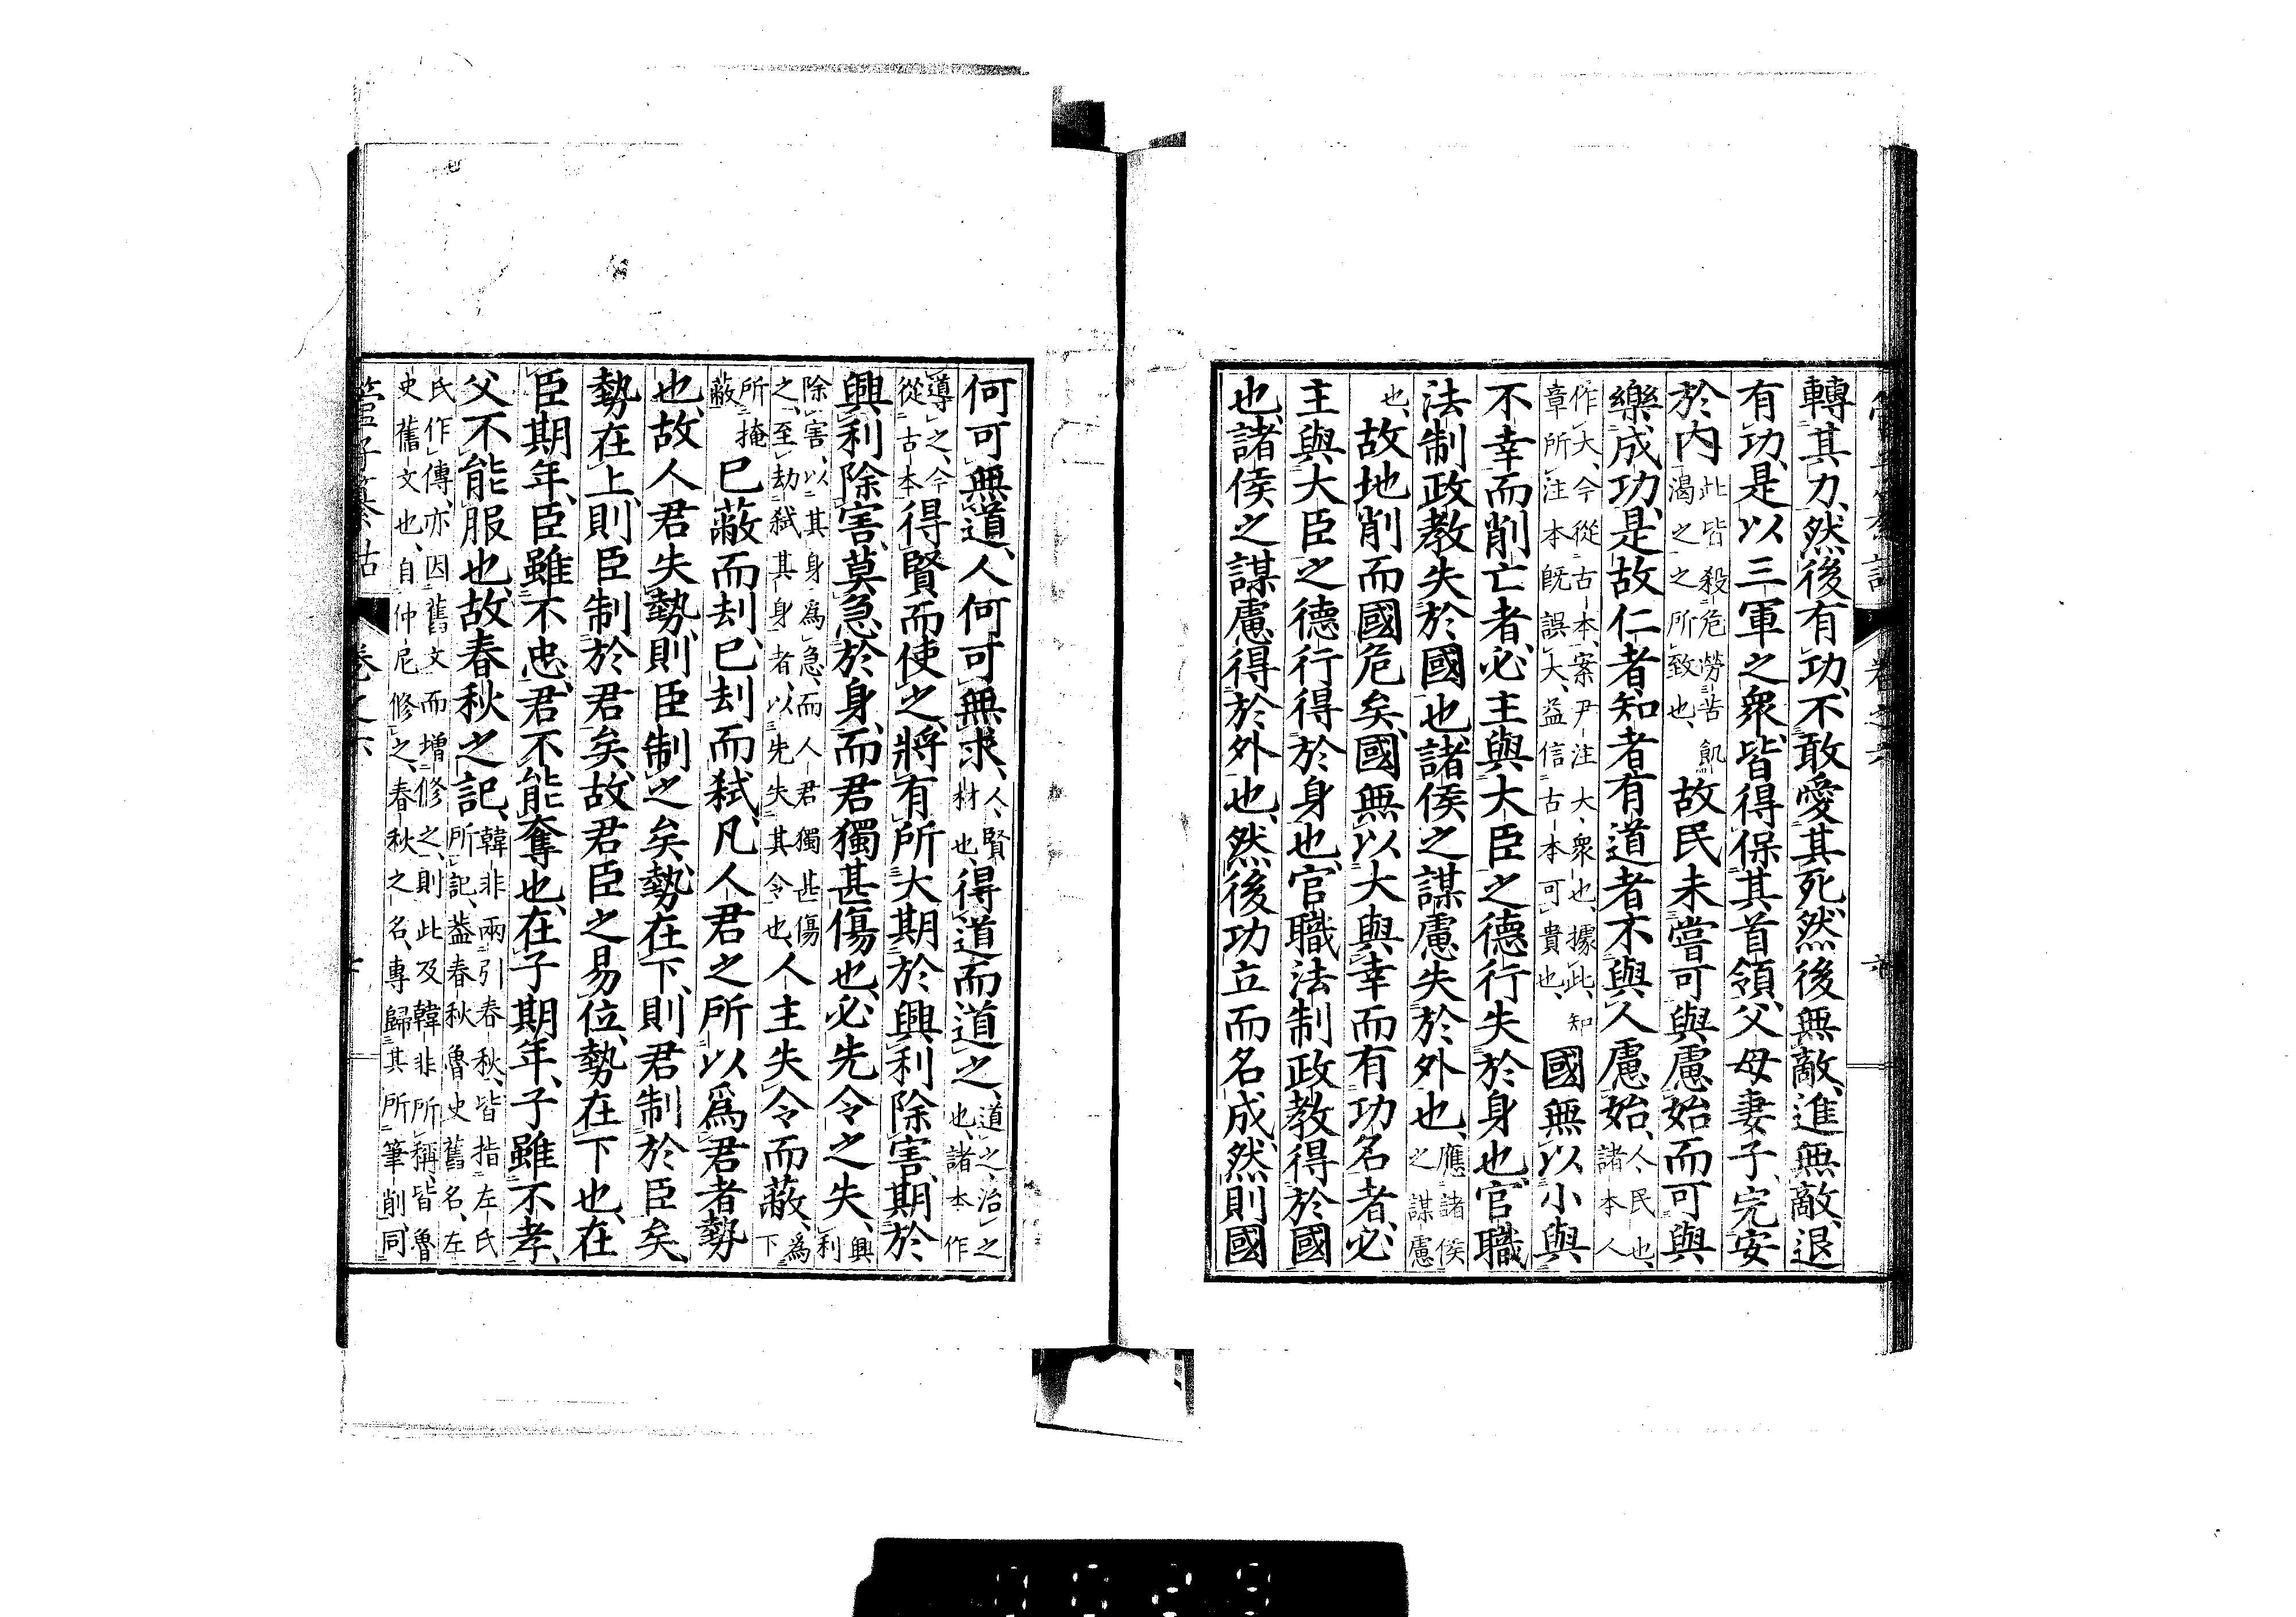 轉其力、然後有功、不敢愛其死、然後無敵、進無敵、退
有功、是以三軍之衆、皆得保其首領、父母妻子、完安
於内、此皆殺危勞苦飢渴之之所致也、故民未嘗可與慮始、而可與
樂成功、是故仁者知者有道者、不與人慮始、人、民也、諸本人
作大、今從古本、案尹注大、衆也、據此、知章所注本既誤大、益信古本可貴也、國無以小與
不幸而削亡者、必主與大臣之德行失於身也、官職
法制政教失於國也、諸侯之謀慮失於外也、應諸侯之謀慮
也、故地削而國危矣、國無以大與幸而有功名者、必
主與大臣之德行得於身也、官職法制政教得於國
也、諸侯之謀慮得於外也、然後功立而名成、然則國
何可無道、人何可無求、人、賢材也、得道而道之、道之、治之也、諸本作
導之、今從古本、得賢而使之、將有所大期於興利除害、期於
興利除害、莫急於身、而君獨甚傷也、必先令之失、興利
除害、以其身爲急、而人君獨甚傷之、至劫弑其身者、以先失其令也、人主失令而蔽、爲下
所掩蔽、已蔽而刦、已刦而弑、凡人君之所以爲君者勢
也、故人君失勢、則臣制之矣、勢在下、則君制於臣矣、
勢在上、則臣制於君矣、故君臣之易位、勢在下也、在
臣期年、臣雖不忠、君不能奪也、在子期年、子雖不孝、
父不能服也、故春秋之記、韓非兩引春秋、皆指左氏所記、蓋春秋魯史舊名、左
氏作傳、亦因舊文而增修之、則此及韓非所稱、皆魯史舊文也、自仲尼修之、春秋之名、專歸其所筆削、同
管子纂詁 卷之六 十